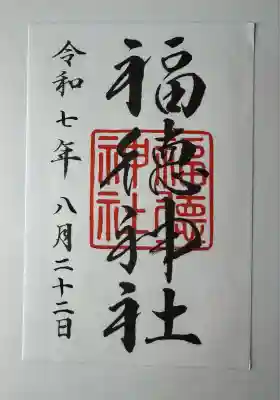 福徳神社
福徳神社
令和七年 八月二十二日